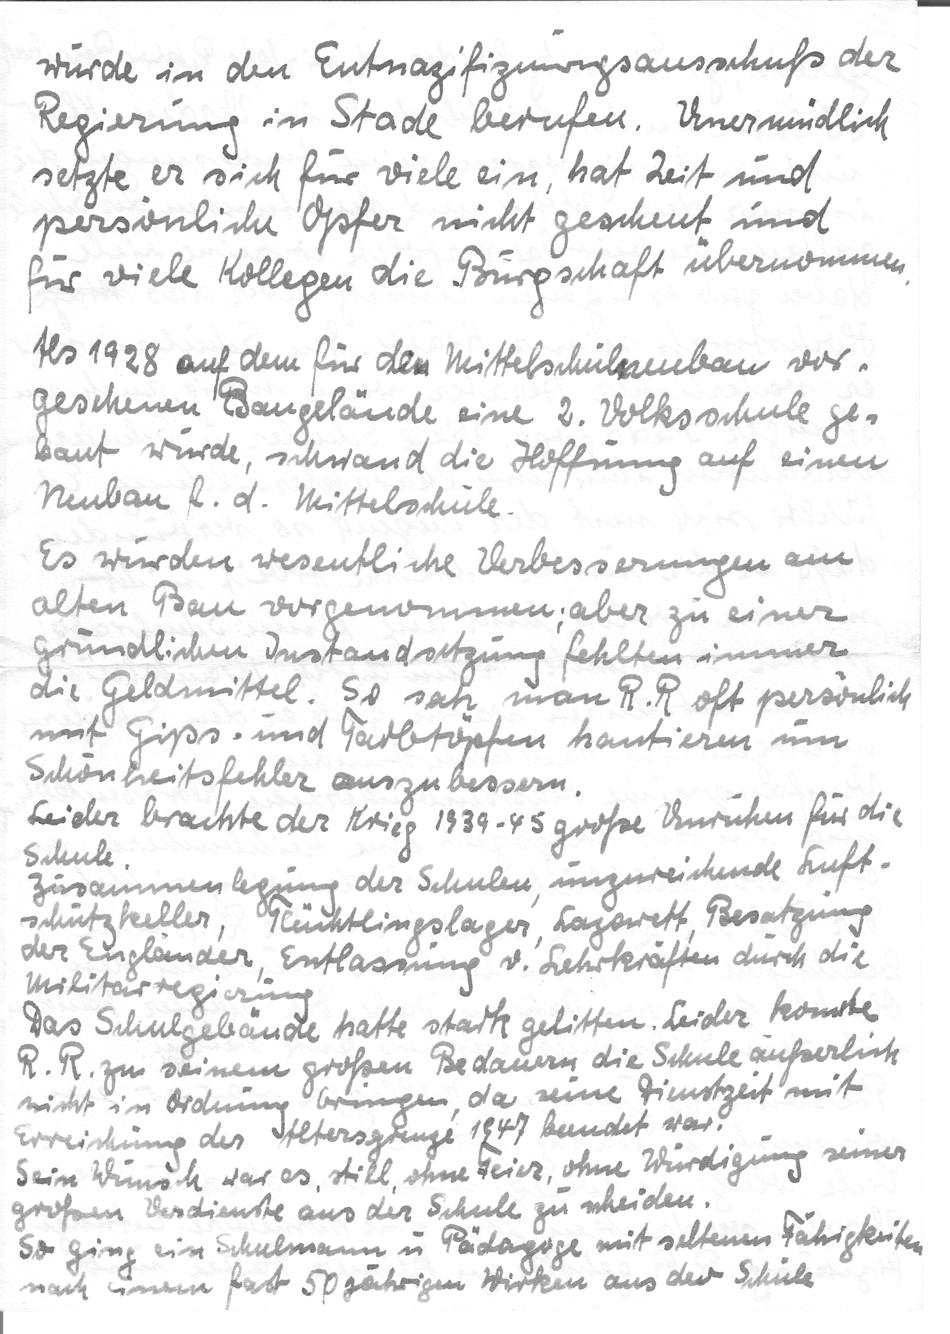 wurde in den Entnazifizirungsausschuß der
Regierung in Stade berufen. Unermüdlich
setzte er sich für viele ein, hat Zeit und
persönliche Opfer nicht gescheut und
für viele Kollegen die Bürgschaft übernommen.
Als 1928 auf dem für den Mittelschulneubau vor-
gesehenen Baugelände eine 2. Volksschule ge-
baut wurde, schwand die Hoffnung auf einen
Neubau f. d. Mittelschule.
Es wurden wesentliche Verbesserungen am
alten Bau vorgenommen, aber zu einer
gründlichen Instandsetzung fehlten immer
die Geldmittel. So sah man R.R oft persönlich
mit Gips- und Farbtöpfen hantieren um
Schönheitsfehler auszubessern.
Leider brachte der Krieg 1939-45 große Unruhen für die
Schule.
Zusammenlegung der Schulen, unzureichende Luft-
schutzkeller, Flüchtlingslager, Lazarett, Besatzung
der Engländer, Entlassung v. Lehrkräften durch die
Militärregierung
Das Schulgebäude hatte stark gelitten. Leider konnte
R.R. zu seinem großen Bedauern die Schule äußerlich
nicht in Ordnung bringen, da seine Dienstzeit mit
Erreichung der Altersgrenze 1947 beendet war.
Sein Wunsch war es, still, ohne Feier, ohne Würdigung seiner
großen Verdienste aus der Schule zu scheiden.
So ging ein Schulmann u Pädagoge mit seltenen Fähigkeiten
nach einem fast 50 jährigen Wirken aus der Schule